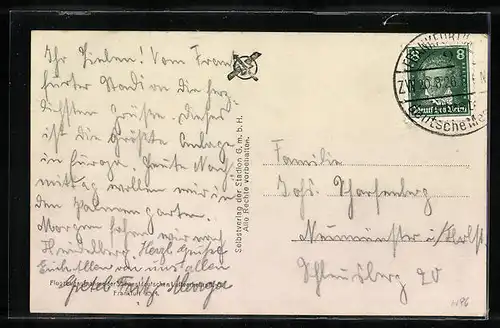 Ihr Lieben! Vom Frank
furter Stadion die herz
lichsten Grüße, dieses
ist die Größte Anlage
in Europa. Heute Nach
mittag wollen wir in
den Palmengarten.
Morgen fahren wir nach
Heidelberg. Herzl. Grüße
Euch Allen von uns allen
Gretel Fritz
Selbstverlag der Stadion G. m. b. H.
Alle Rechte vorbehalten.
Frankfurt a. M.
1
FRANKFURT
8
8
Deutsches Reich
Deutsche
Familie
Joh. Scharfenberg
Neumünster i/Holst.
20